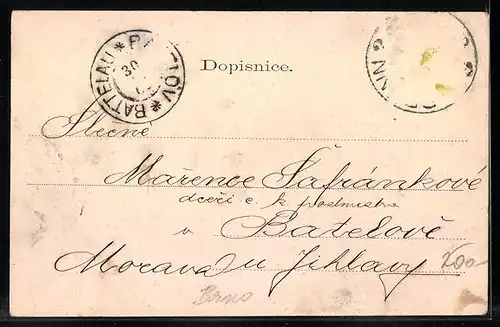 BATTELAU * BATELOV *
30
Dopisnice.
BRÜNN 2
Slečně
Mařence Šafránkové
dceři c. k. poštmistra
v Batelově
Morava u Jihlavy
200
Brno